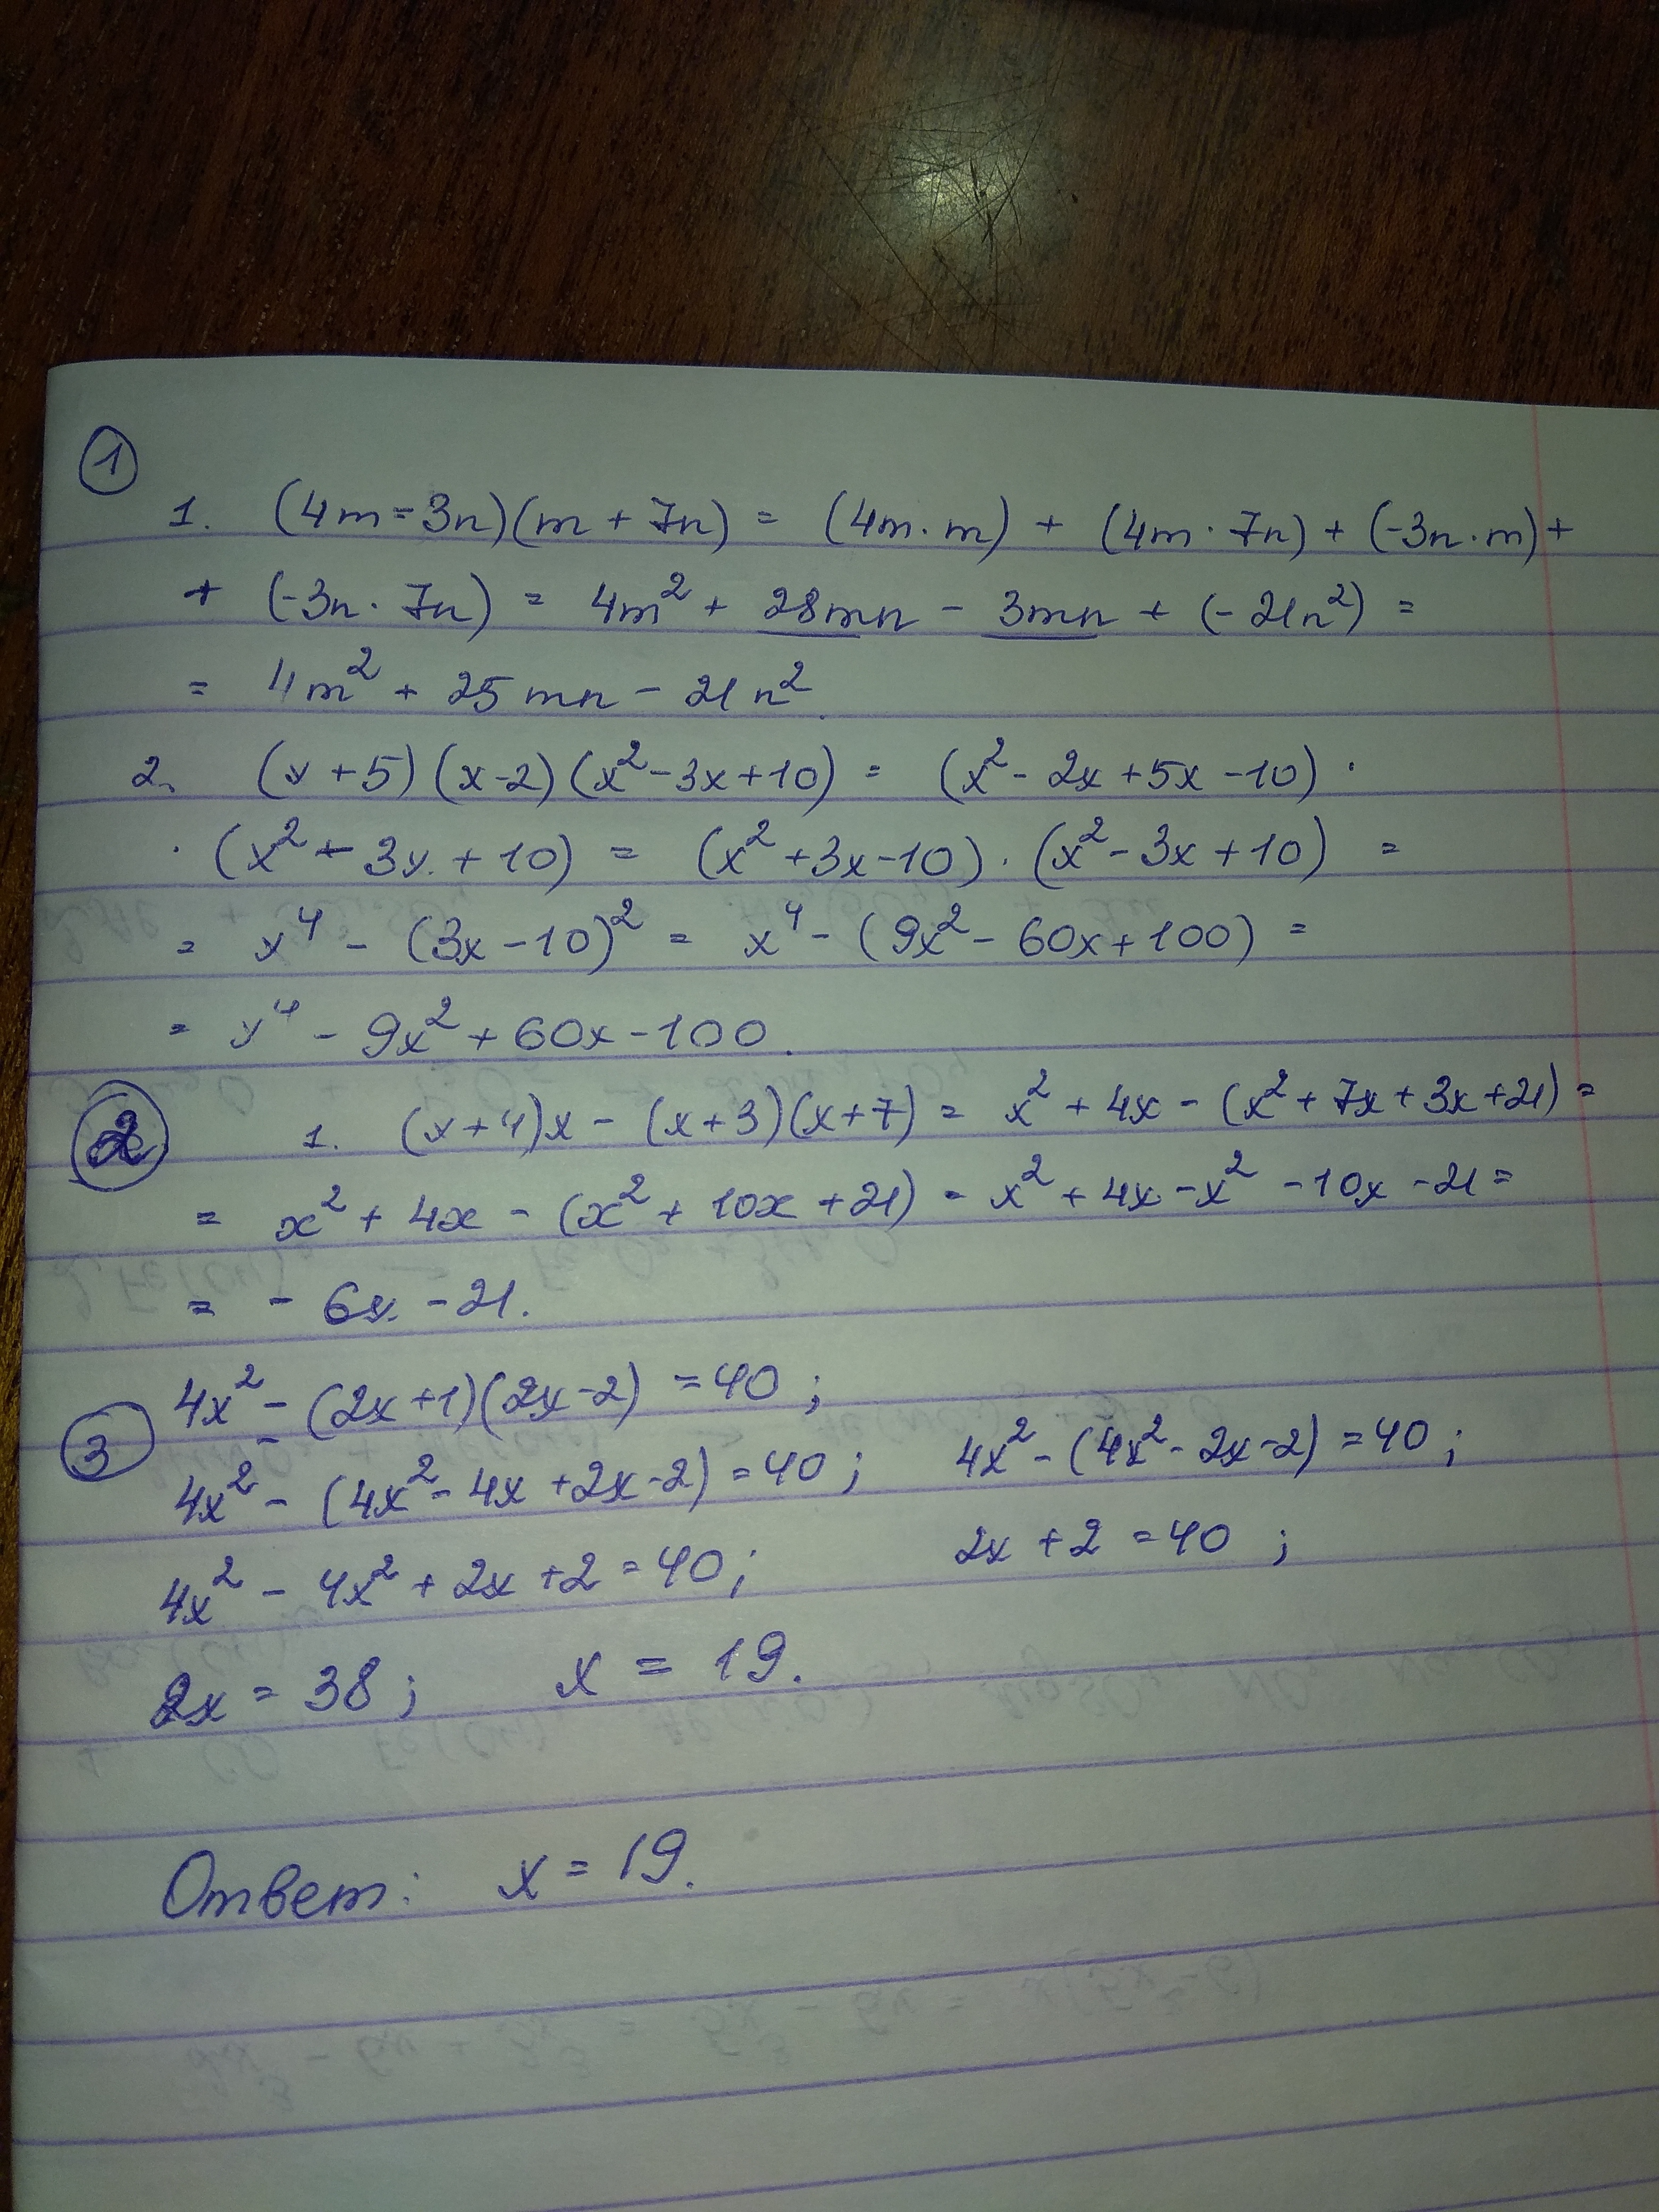 1
1. (4m - 3n)(m + 7n) = (4m · m) + (4m · 7n) + (-3n · m) +
+ (-3n · 7n) = 4m² + 28mn - 3mn + (-21n²) =
= 4m² + 25mn - 21n².
2. (x + 5)(x - 2)(x² - 3x + 10) = (x² - 2x + 5x - 10) ·
· (x² - 3x + 10) = (x² + 3x - 10) · (x² - 3x + 10) =
= x⁴ - (3x - 10)² = x⁴ - (9x² - 60x + 100) =
= x⁴ - 9x² + 60x - 100.
2 1. (x + 4)x - (x + 3)(x + 7) = x² + 4x - (x² + 7x + 3x + 21) =
= x² + 4x - (x² + 10x + 21) = x² + 4x - x² - 10x - 21 =
= - 6x - 21.
3 4x² - (2x + 1)(2x - 2) = 40;
4x² - (4x² - 4x + 2x - 2) = 40; 4x² - (4x² - 2x - 2) = 40;
4x² - 4x² + 2x + 2 = 40; 2x + 2 = 40;
2x = 38; x = 19.
Ответ: x = 19.